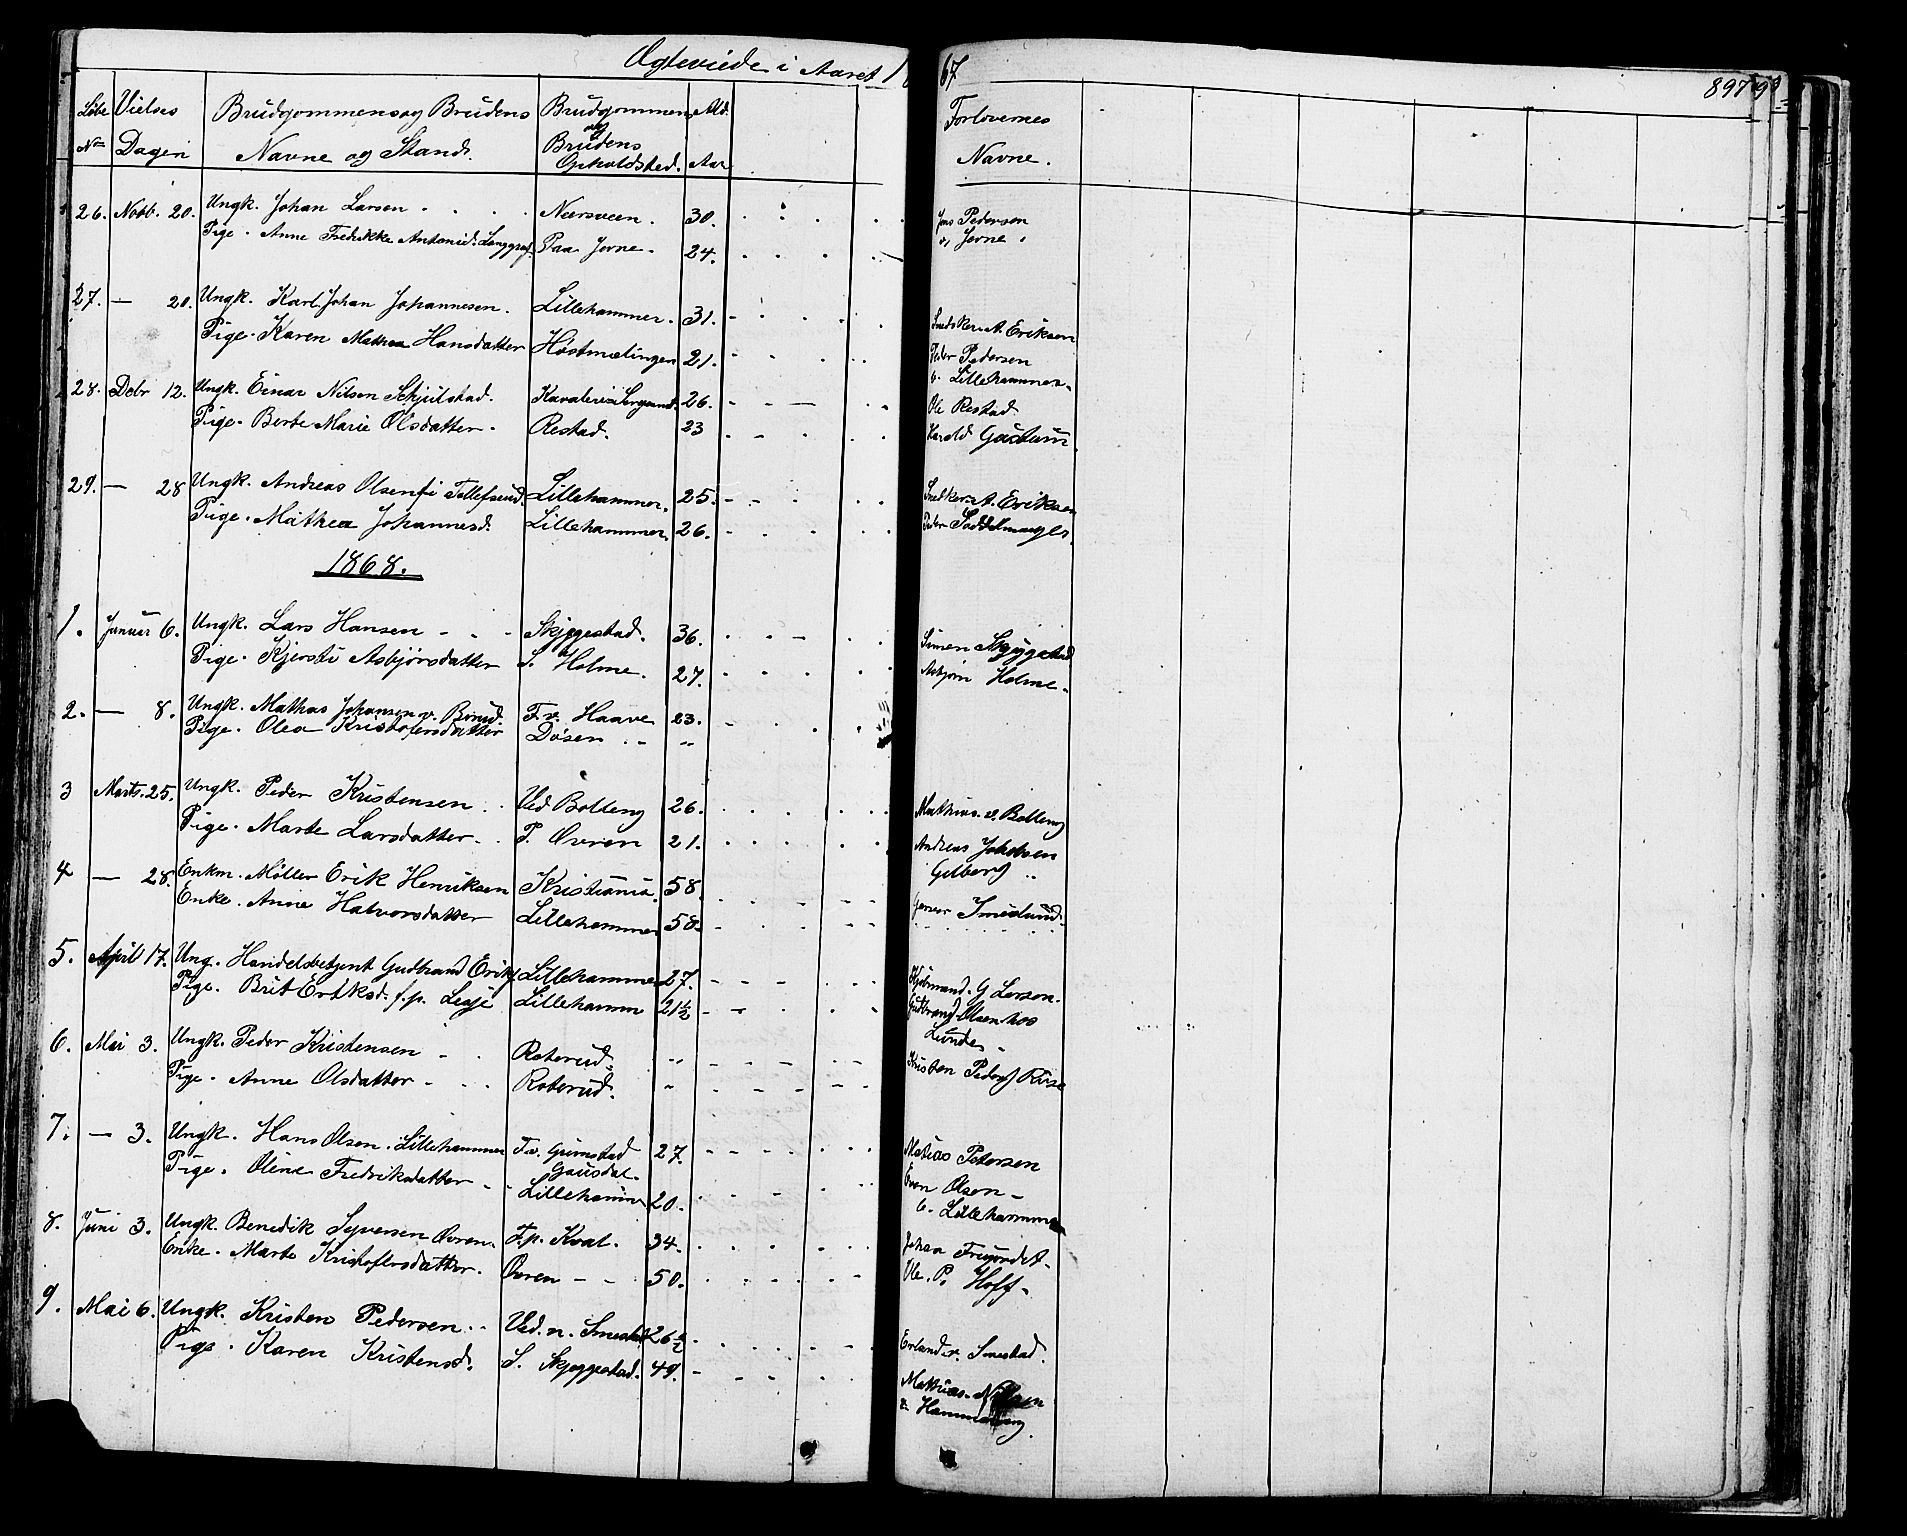 Ægteviede i Aaret 1867
897
Løbe Vielses Brudgommens og Brudens Brudgommens Ald. Forlovernes
No Dagen Navne og Stand. og Brudens Opholdsted. Aar Navne.
26. Novb. 20. Ungk. Johan Larsen Nærsveen. 30. Jens Pedersen
Pige. Anne Fredrikke Antonied. Paa Jevne. 24. v. Jevne.
27. — 20. Ungk. Karl Johan Johannesen. Lillehammer. 31. Snedker A. Eriksen
Pige. Karen Mathea Hansdatter Høstmælingen 21. Peder Pedersen
v. Lillehammer.
28. Debr 12. Ungk. Einar Nilsen Skjulstad. Kavaleriesergeand. 26. Ole Restad.
Pige. Berte Marie Olsdatter. Restad. 23 Harald
29. — 28 Ungk. Andreas Olsen Tollefsrud. Lillehammer. 25. Snedker A. Eriksen
Pige. Mathea Johannesd. Lillehammer. 26. Peder Saddelmager.
1868.
1. Januar 6. Ungk. Lars Hansen Skjeggestad. 36. Simen Skjeggestad
Pige. Kjersti Asbjørsdatter S. Holme. 27. Asbjørn Holme.
2. — 8. Ungk. Mathas Johansen v. F. v. Haave 23.
Pige. Olea Kristofersdatter Døsen „
3 Marts. 25. Ungk. Peder Kristensen Ved Bolleng 26. Mathias v. Bolleng
Pige. Marte Larsdatter P. Øvren 21. Andreas Jakobsen
Gilberg „
4 — 28. Enkm. Møller Erik Henriksen Kristiania. 58. Smestuud.
Enke. Anne Halvorsdatter Lillehammer 58.
5. April 17. Ung. Handelsbetjent Gudbrand Eriks. Lillehammer 27. Kjøbmand. G Larson.
Pige. Brit Eriksd. f. p. Lesje Lillehamm 21½ Gudbrand Olsen hos
Lunde.
6. Mai 3. Ungk. Peder Kristensen Roterud. „ Kristen Peders
Pige. Anne Olsdatter Roterud. „
7. — 3. Ungk. Hans Olsen. Lillehammer F. v. Grimstad Gausdal. 27. Matias Petersen
Pige. Oline Fredriksdatter Lillehammer 20. Even Olsen
v. Lillehammer
8. Juni 3. Ungk. Benedik Syversen Øvren. F. p. Kval. 34. Johan
Enke. Marte Kristofersdatter. Øvren 50. Ole. P. Hoff
9. Mai 6. Ungk. Kristen Pedersen Ved. n. Smestad 26½ Erland v. Smestad.
Pige. Karen Kristensd. S. Skjeggestad. 49. Mathias Nilsen
v. Hammerberg.